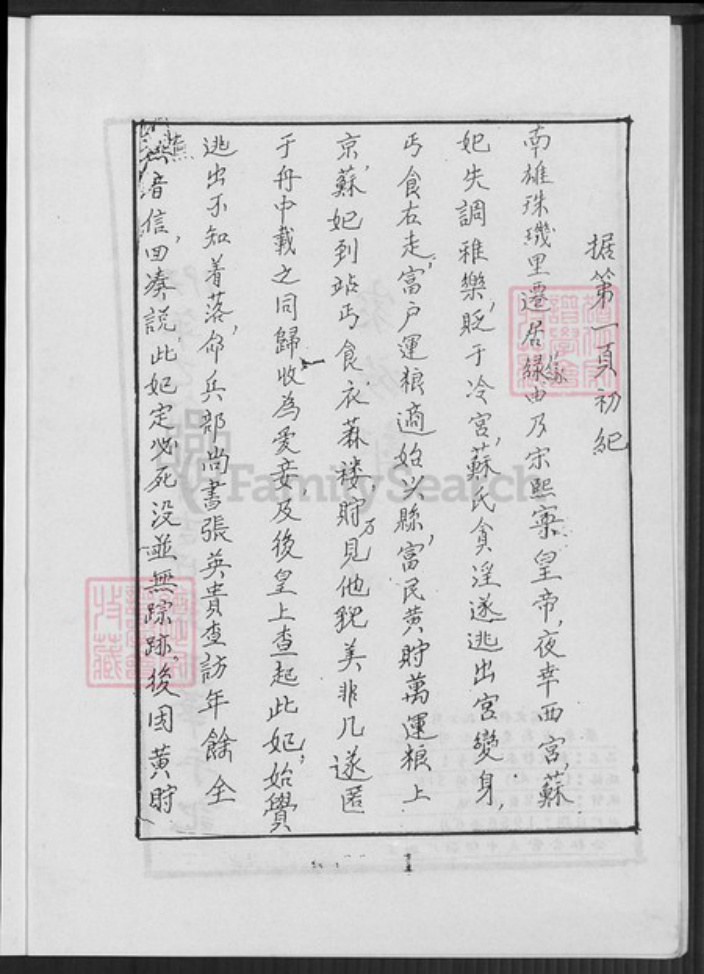 据第一頁初紀
南雄珠璣里遷居緣由乃宋熙寧皇帝,夜幸西宮,蘇
妃失調雅樂,貶于冷宮,蘇氏貪淫遂逃出宮變身,
丐食右走,富户運粮適始兴縣,富民黃貯萬運粮上
京,蘇妃到站丐食,衣蔴褸,貯万見他貌美非凡遂匿
于舟中載之同歸收為愛妾,及後皇上查起此妃,始覺
逃出不知着落,命兵部尚書張英貴查訪年餘全
無音信,回凑説,此妃定必死没並無踪跡,後因黃貯
1
FamilySearch